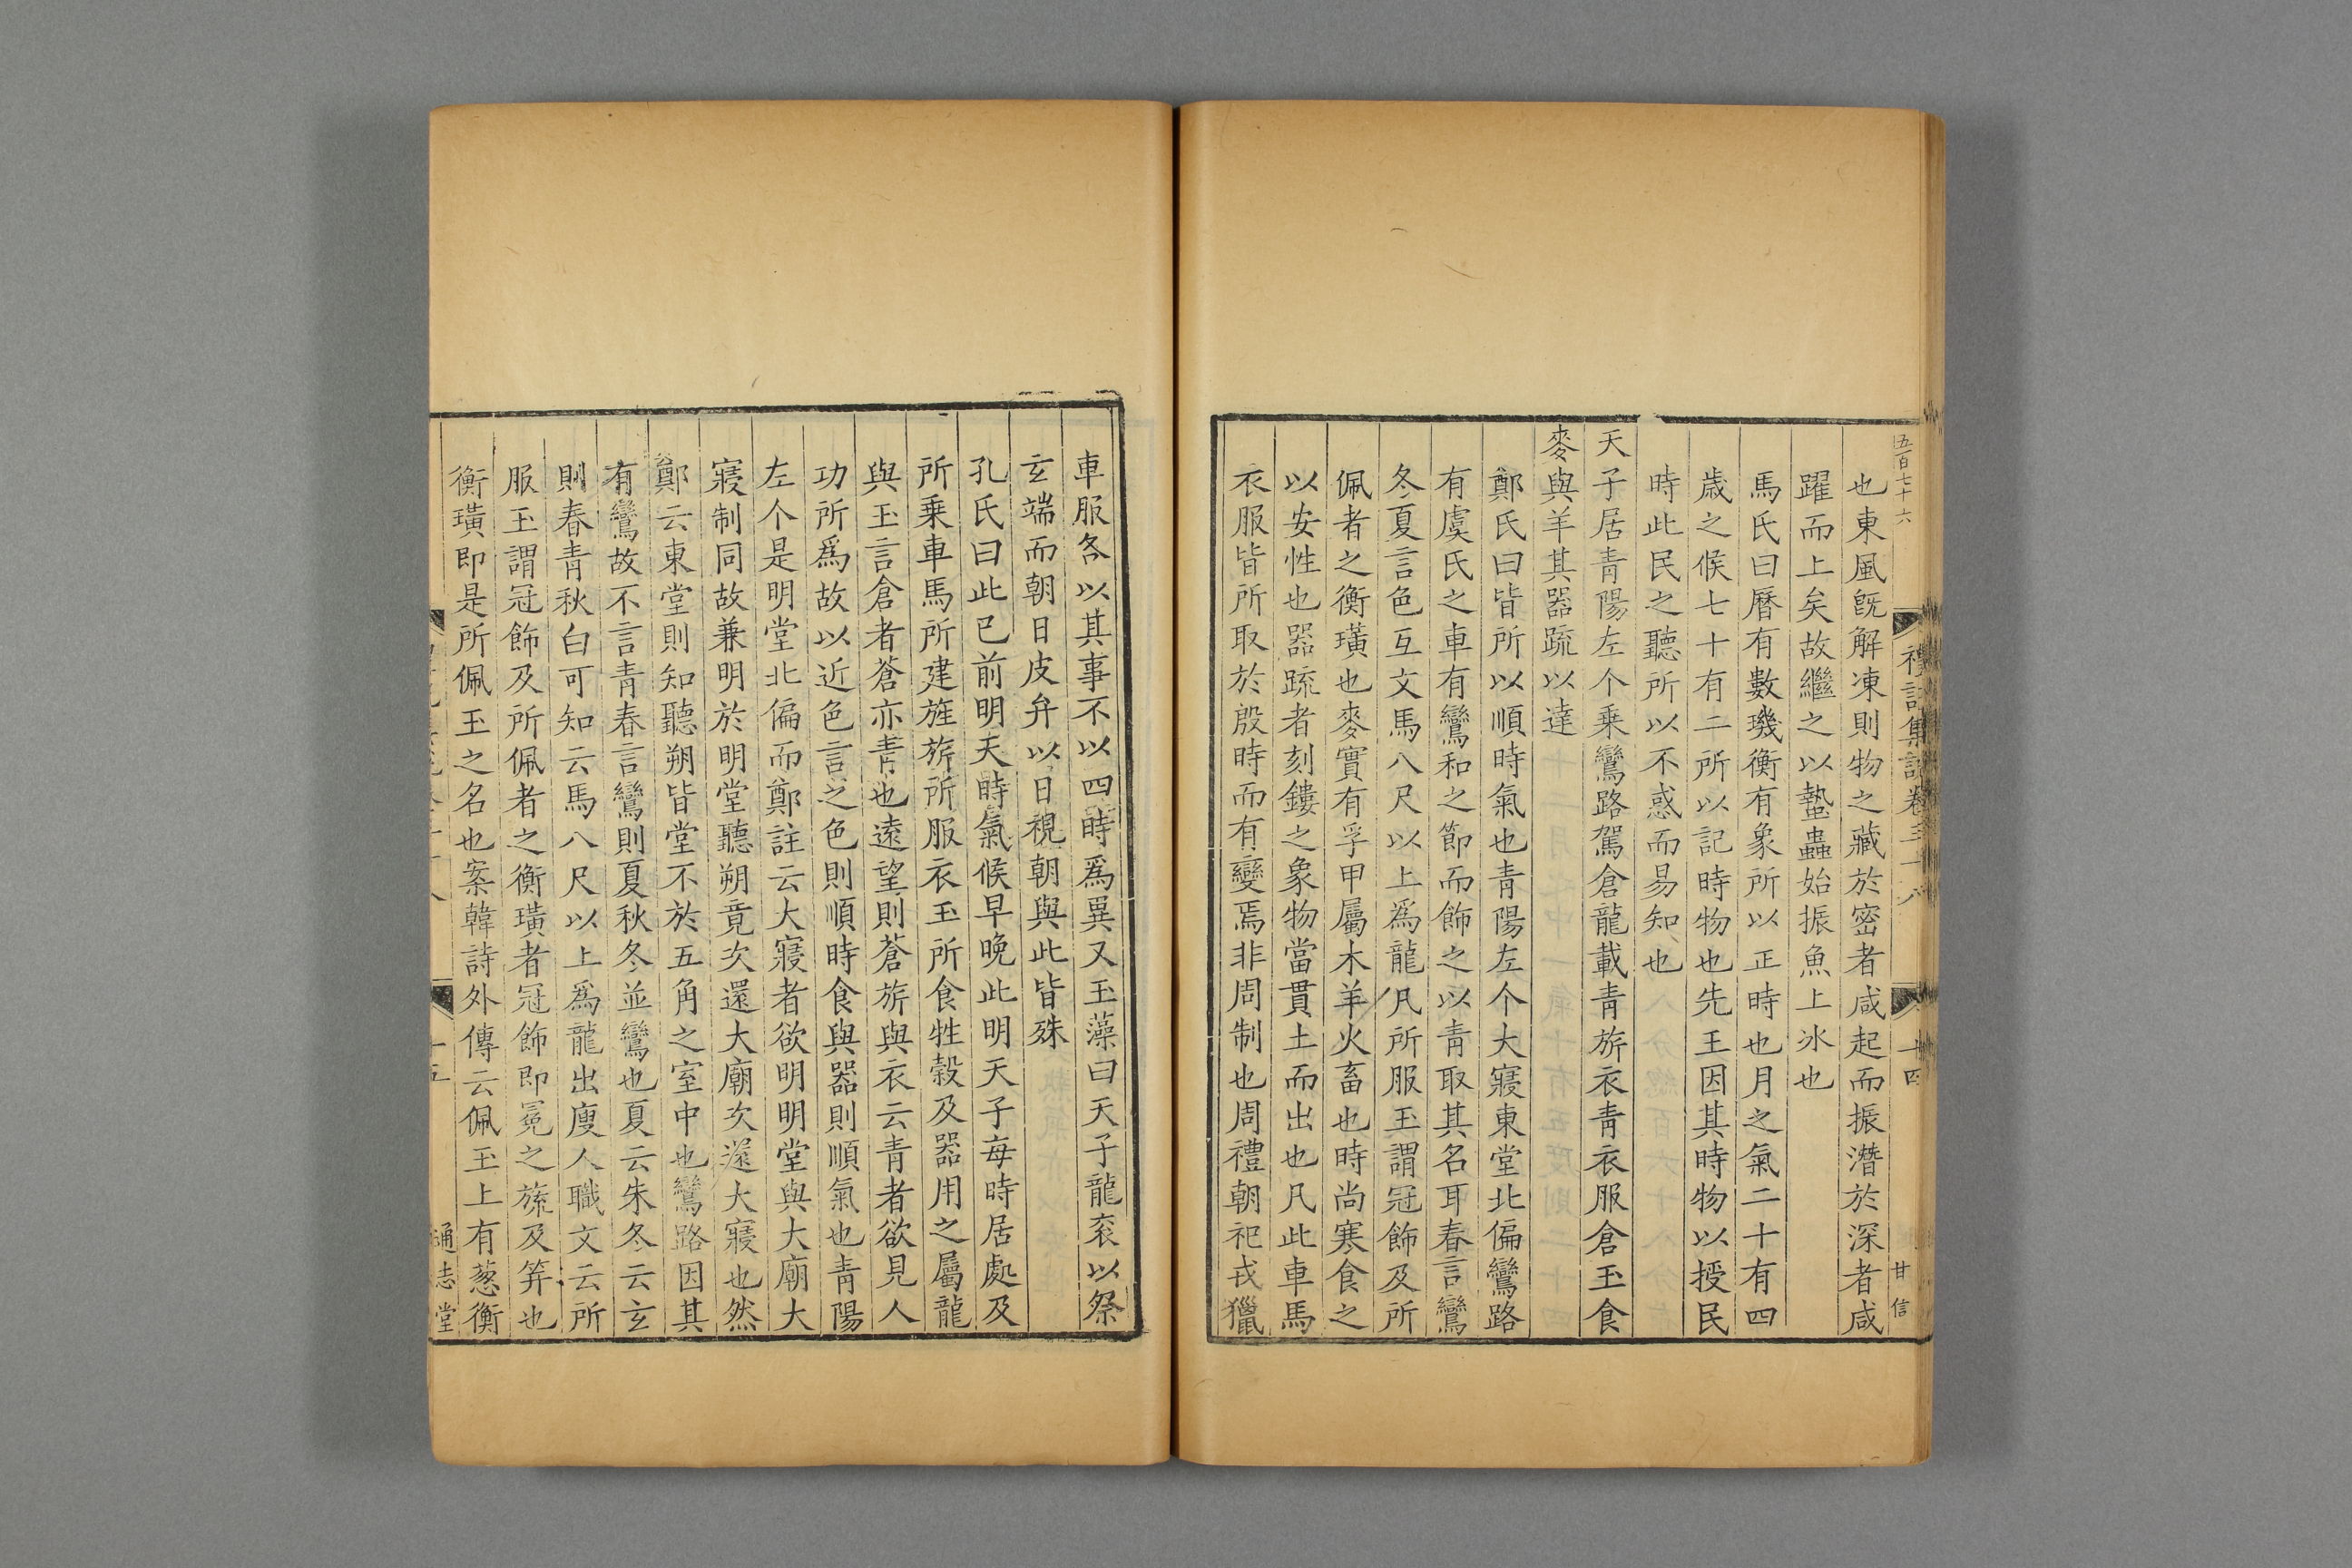 五百七十六
禮記集說卷三十八
十四
甘信
也東風旣解凍則物之藏於密者咸起而振潛於深者咸
躍而上矣故繼之以蟄蟲始振魚上冰也
馬氏曰曆有數璣衡有象所以正時也月之氣二十有四
歲之候七十有二所以記時物也先王因其時物以授民
時此民之聽所以不惑而易知也
天子居青陽左个乘鸞路駕倉龍載青旂衣青衣服倉玉食
麥與羊其器疏以達
鄭氏曰皆所以順時氣也青陽左个大寢東堂北偏鸞路
有虞氏之車有鸞和之節而飾之以青取其名耳春言鸞
冬夏言色互文馬八尺以上爲龍凡所服玉謂冠飾及所
佩者之衡璜也麥實有孚甲屬木羊火畜也時尚寒食之
以安性也器疏者刻鏤之象物當貫土而出也凡此車馬
衣服皆所取於殷時而有變焉非周制也周禮朝祀戎獵
車服各以其事不以四時爲異又玉藻曰天子龍衮以祭
玄端而朝日皮弁以日視朝與此皆殊
孔氏曰此已前明天時氣候早晚此明天子每時居處及
所乗車馬所建旌旂所服衣玉所食牲穀及器用之屬龍
與玉言倉者蒼亦青也遠望則蒼旂與衣云青者欲見人
功所爲故以近色言之色則順時食與器則順氣也青陽
左个是明堂北偏而鄭註云大寢者欲明明堂與大廟大
寢制同故兼明於明堂聽朔竟次還大廟次還大寢也然
鄭云東堂則知聽朔皆堂不於五角之室中也鸞路因其
有鸞故不言青春言鸞則夏秋冬並鸞也夏云朱冬云玄
則春青秋白可知云馬八尺以上爲龍出廋人職文云所
服玉謂冠飾及所佩者之衡璜者冠飾即冕之旒及笄也
衡璜即是所佩玉之名也案韓詩外傳云佩玉上有葱衡
十五
通志堂